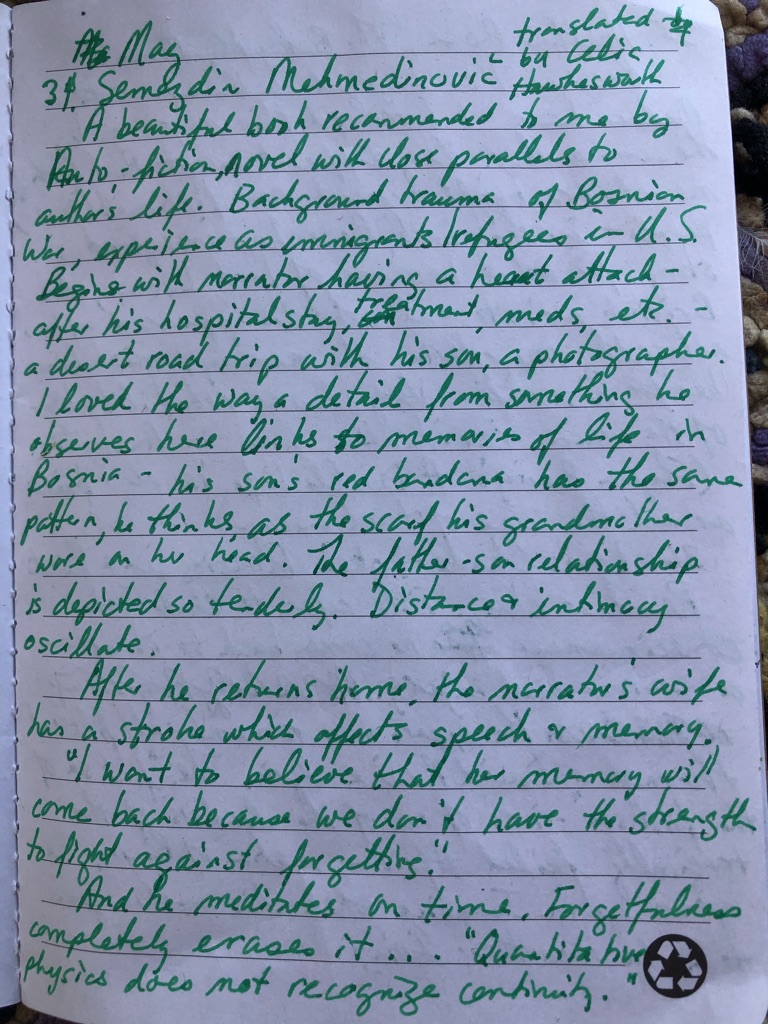 May
translated by
by Celia
Hawkesworth
3 . Semezdin Mehmedinović
A beautiful book recommended to me by
Auto-fiction, novel with close parallels to
author's life. Background trauma of Bosnian
War, experience as immigrants/refugees in U.S.
Begins with narrator having a heart attack -
after his hospital stay, treatment, meds, etc. -
a desert road trip with his son, a photographer.
I loved the way a detail from something he
observes here links to memories of life in
Bosnia - his son's red bandana has the same
pattern, he thinks, as the scarf his grandmother
wore on her head. The father-son relationship
is depicted so tenderly. Distance & intimacy
oscillate.
After he returns home, the narrator's wife
has a stroke which affects speech & memory.
"I want to believe that her memory will
come back because we don't have the strength
to fight against forgetting."
And he meditates on time. Forgetfulness
completely erases it.... "Quantitative
physics does not recognize continuity."